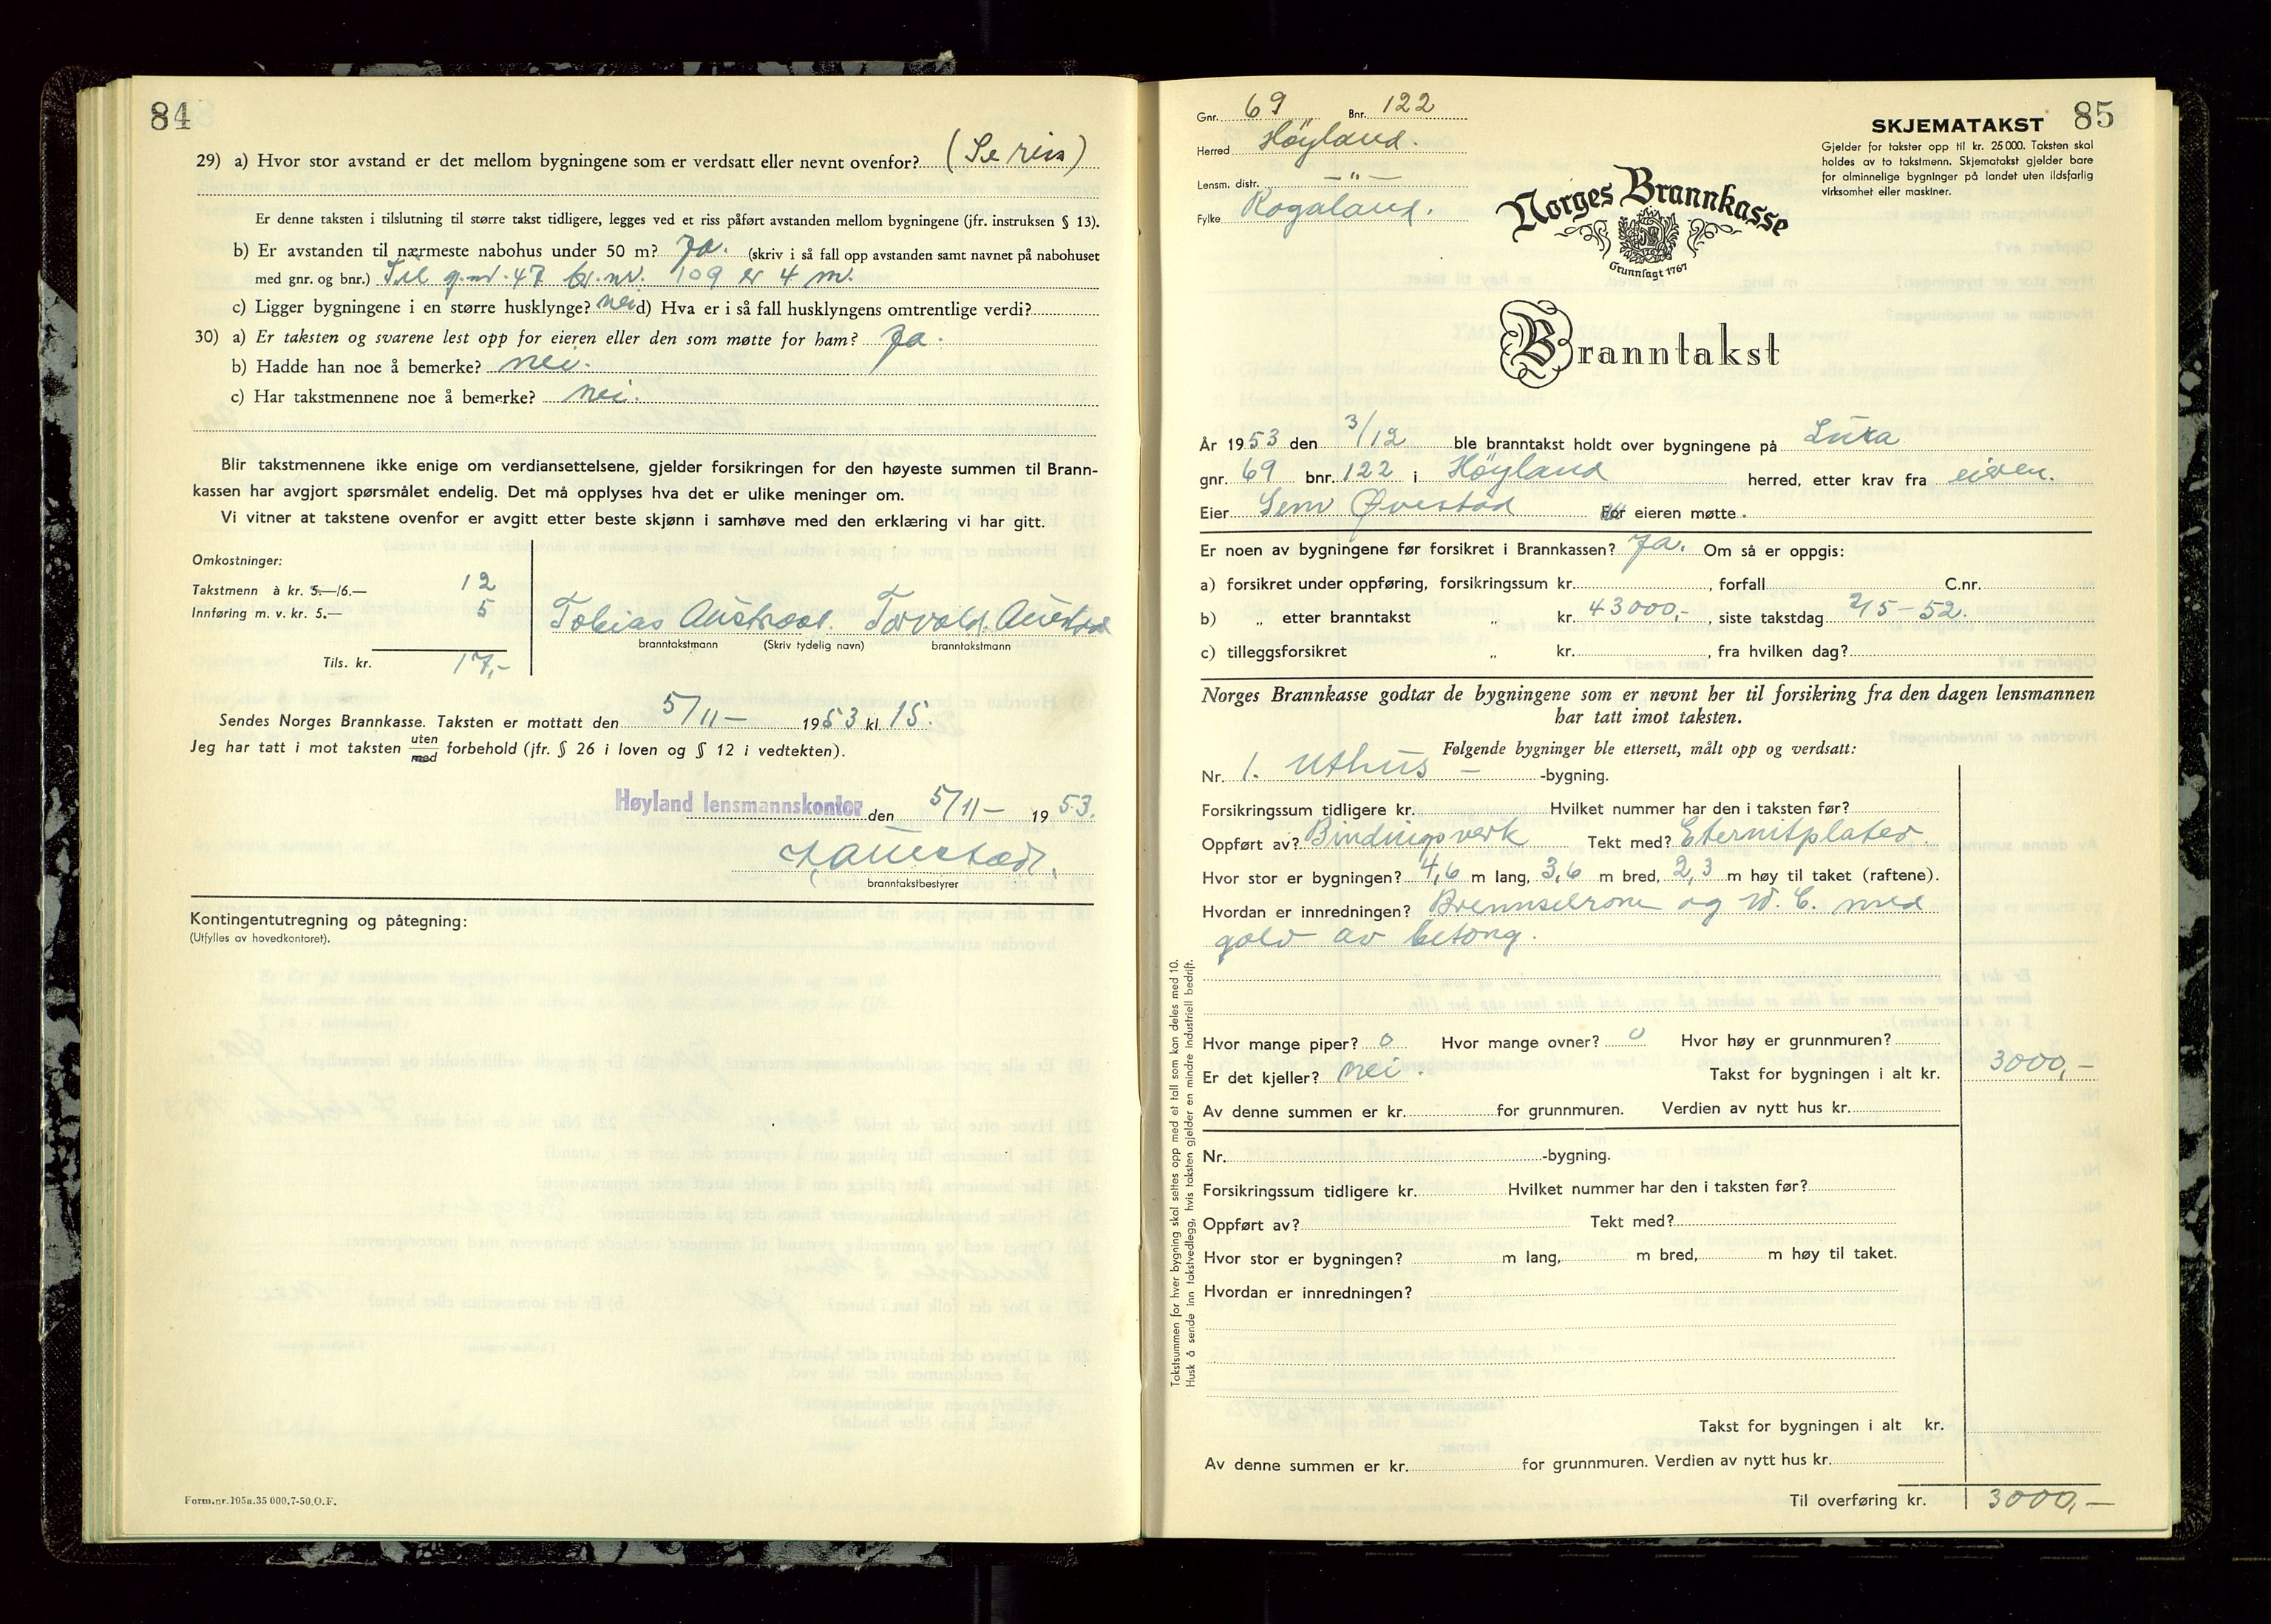 84
29) a) Hvor stor avstand er det mellom bygningene som er verdsatt eller nevnt ovenfor? (Se riss)
Er denne taksten i tilslutning til større takst tidligere, legges ved et riss påført avstanden mellom bygningene (jfr. instruksen § 13).
b) Er avstanden til nærmeste nabohus under 50 m? Ja. (skriv i så fall opp avstanden samt navnet på nabohuset
med gnr. og bnr.) Til g.nr. 47 br.nr. 109 er 4 m.
c) Ligger bygningene i en større husklynge? nei d) Hva er i så fall husklyngens omtrentlige verdi?
30) a) Er taksten og svarene lest opp for eieren eller den som møtte for ham? Ja.
b) Hadde han noe å bemerke? nei.
c) Har takstmennene noe å bemerke? nei.
Blir takstmennene ikke enige om verdiansettelsene, gjelder forsikringen for den høyeste summen til Brann-
kassen har avgjort spørsmålet endelig. Det må opplyses hva det er ulike meninger om.
Vi vitner at takstene ovenfor er avgitt etter beste skjønn i samhøve med den erklæring vi har gitt.
Omkostninger:
Takstmenn à kr. 5.—/6.— 12
Innføring m. v. kr. 5.— 5
Tobias Austraat. Torvald
branntakstmann (Skriv tydelig navn) branntakstmann
Tils. kr. 17,-
Sendes Norges Brannkasse. Taksten er mottatt den 5/11 – 1953 kl. 15.
Jeg har tatt i mot taksten uten
med forbehold (jfr. § 26 i loven og § 12 i vedtekten).
Høyland lensmannskontor den 5/11 – 1953.
branntakstbestyrer
Kontingentutregning og påtegning:
(Utfylles av hovedkontoret).
Form.nr.105a.35 000.7-50.O.F.
85
Gnr. 69 Bnr. 122
Herred Høyland.
Lensm. distr. –"–
Fylke Rogaland.
SKJEMATAKST
Gjelder for takster opp til kr. 25 000. Taksten skal
holdes av to takstmenn. Skjematakst gjelder bare
for alminnelige bygninger på landet uten ildsfarlig
virksomhet eller maskiner.
Norges Brannkasse
Grunnlagt 1767
Branntakst
År 1953 den 3/12 ble branntakst holdt over bygningene på Lura
gnr. 69 bnr. 122 i Høyland herred, etter krav fra eieren.
Eier Øvestad For eieren møtte.
Er noen av bygningene før forsikret i Brannkassen? Ja. Om så er oppgis:
a) forsikret under oppføring, forsikringssum kr. , forfall C.nr.
b) „ etter branntakst „ kr. 43000,- , siste takstdag 2/5 – 52.
c) tilleggsforsikret „ kr. , fra hvilken dag?
Norges Brannkasse godtar de bygningene som er nevnt her til forsikring fra den dagen lensmannen
har tatt imot taksten.
Følgende bygninger ble ettersett, målt opp og verdsatt:
Nr. 1. Uthus – -bygning.
Forsikringssum tidligere kr. Hvilket nummer har den i taksten før?
Oppført av? Bindingsverk Tekt med? Eternitplater
Hvor stor er bygningen? 4,6 m lang, 3,6 m bred, 2,3 m høy til taket (raftene).
Hvordan er innredningen? Brennselrom og W. C. med
golv av betong.
Hvor mange piper? 0 Hvor mange ovner? 0 Hvor høy er grunnmuren?
Er det kjeller? nei. Takst for bygningen i alt kr. 3000,-
Av denne summen er kr. for grunnmuren. Verdien av nytt hus kr.
Nr. -bygning.
Forsikringssum tidligere kr. Hvilket nummer har den i taksten før?
Oppført av? Tekt med?
Hvor stor er bygningen? m lang, m bred, m høy til taket.
Hvordan er innredningen?
Takst for bygningen i alt kr.
Av denne summen er kr. for grunnmuren. Verdien av nytt hus kr.
Til overføring kr. 3000,-
Takstsummen for hver bygning skal settes opp med et tall som kan deles med 10.
Husk å sende inn takstvedlegg, hvis taksten gjelder en mindre industriell bedrift.